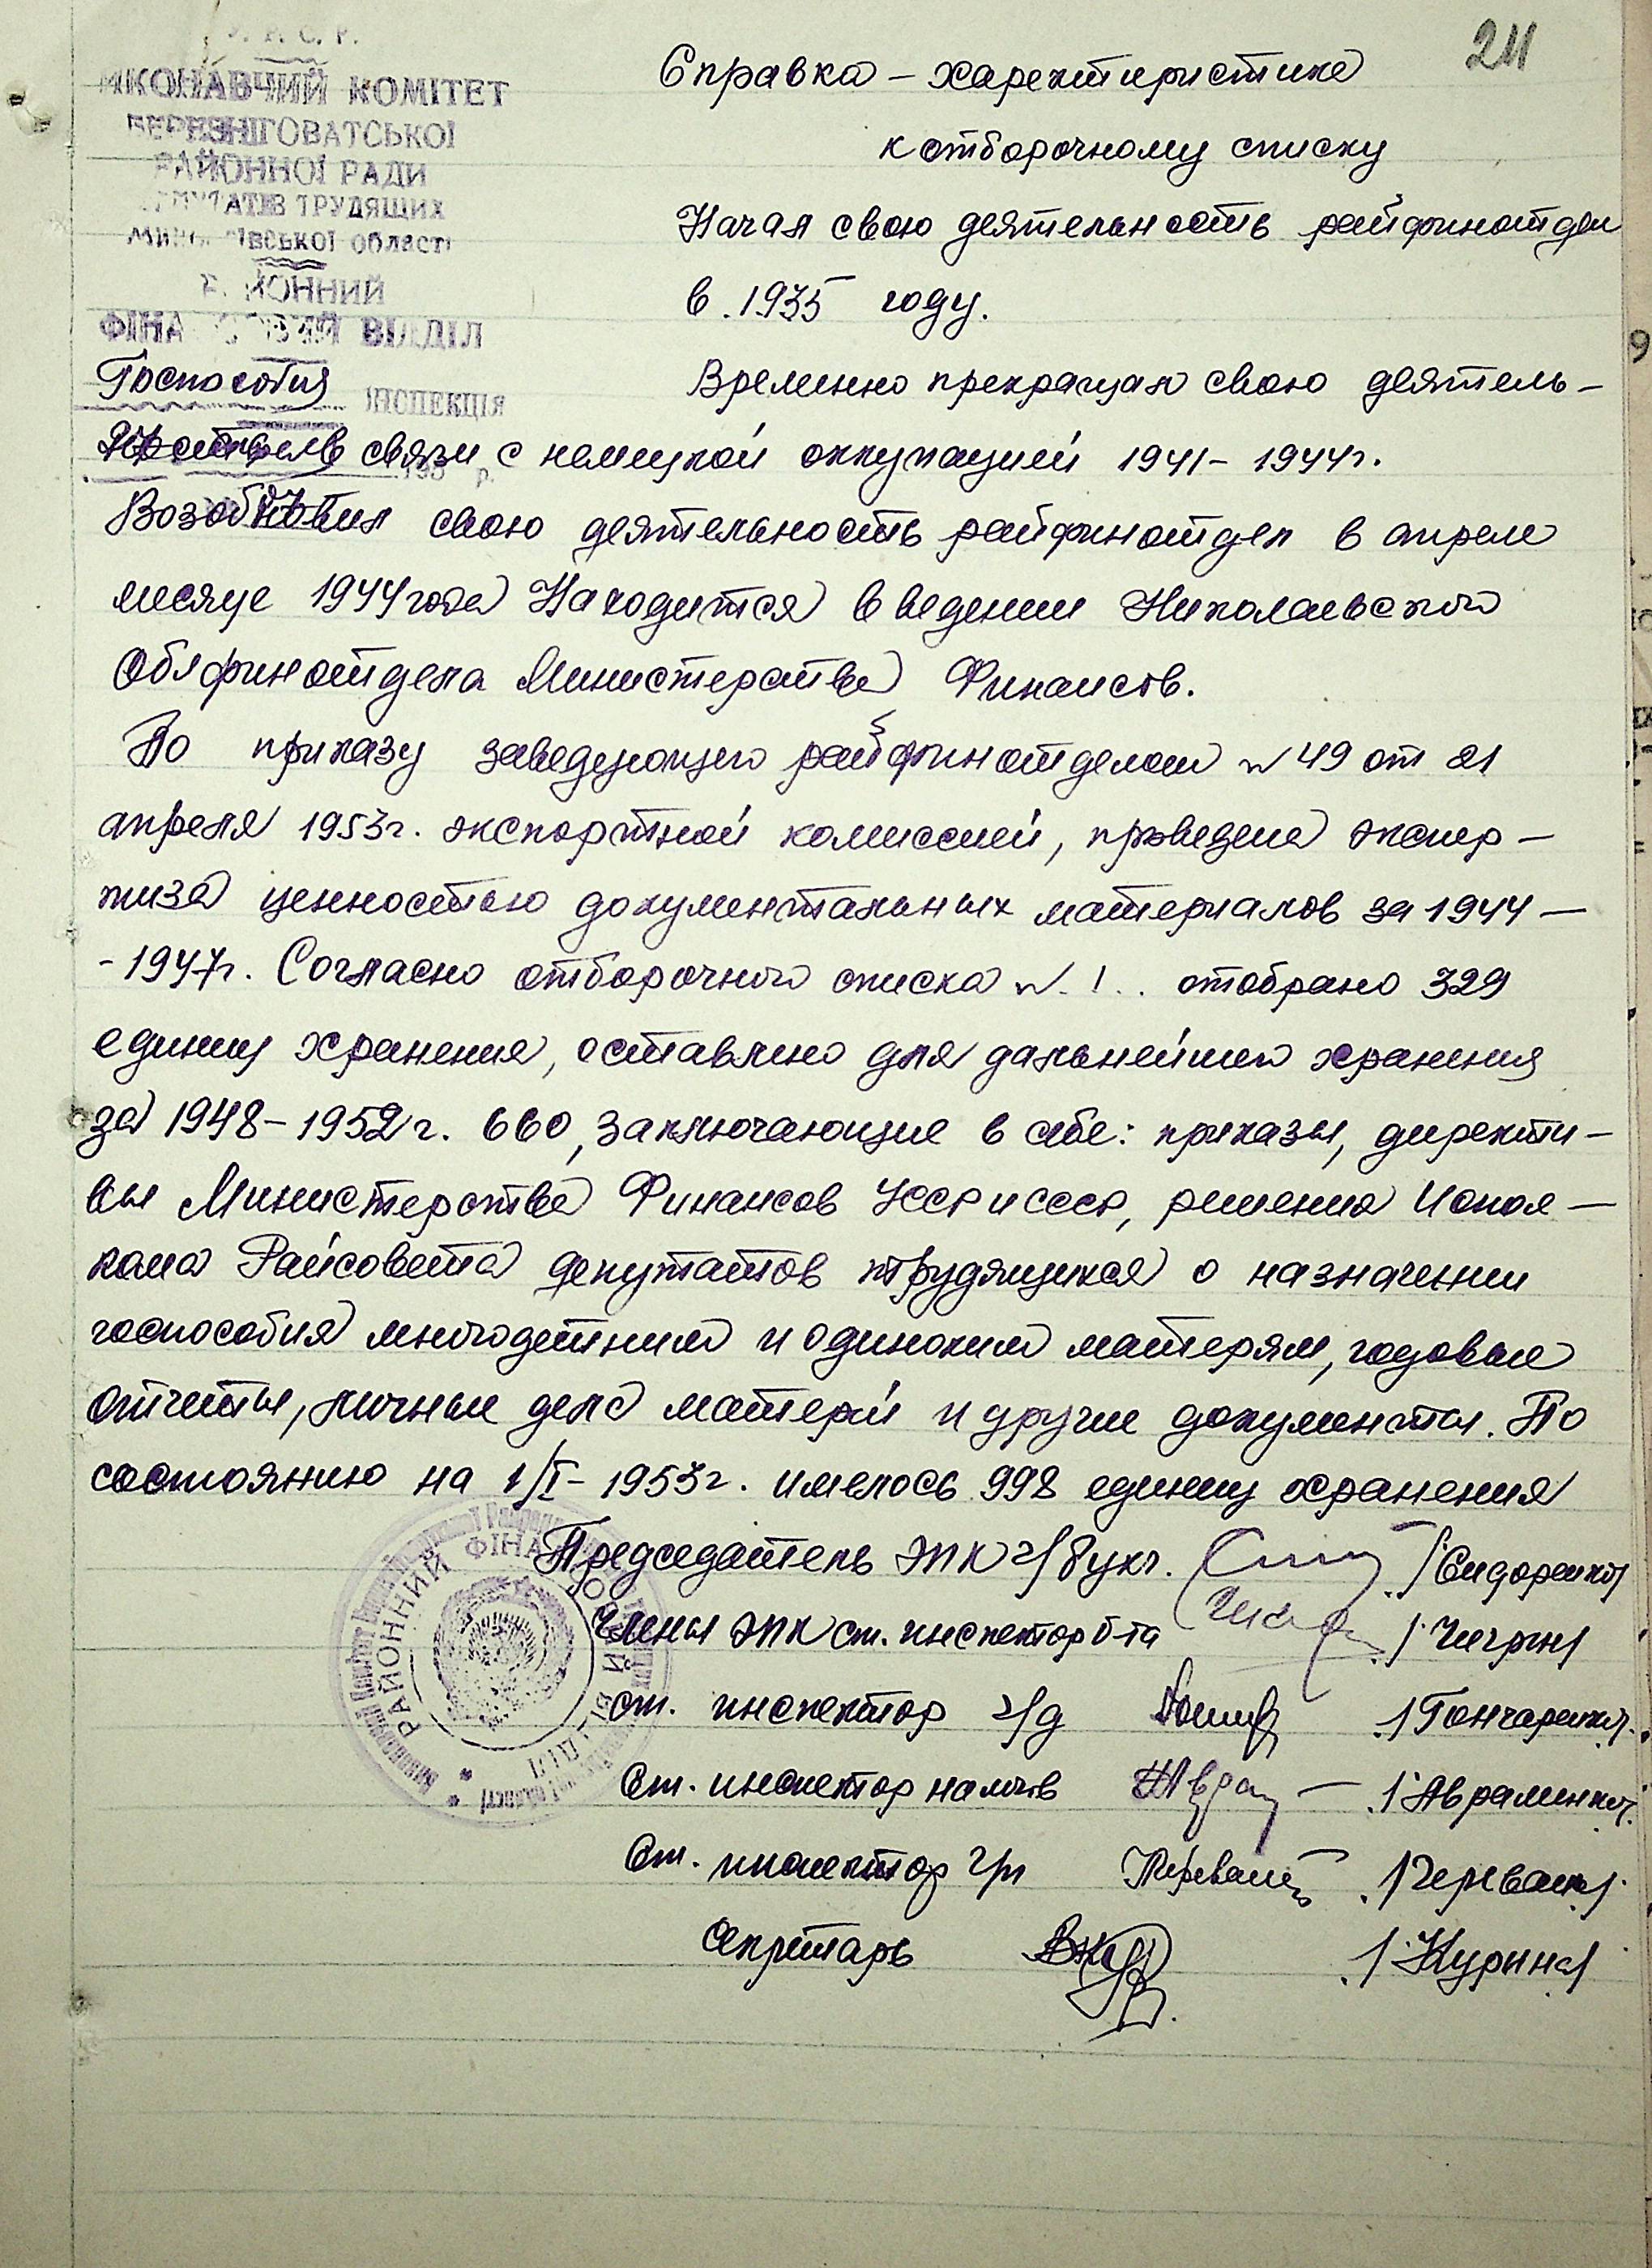 У. Р. С. Р.
ВИКОНАВЧИЙ КОМІТЕТ
БЕРЕЗНІГОВАТСЬКОЇ
РАЙОННОЇ РАДИ
ДЕПУТАТІВ ТРУДЯЩИХ
Миколаївської області
РАЙОННИЙ
ФІНАНСОВИЙ ВІДДІЛ
Госпособия ІНСПЕКЦІЯ
195 р.
24
Справка – характиристика
к отборочному списку
Начал свою деятельность райфинотдел
в 1935 году.
Временно прекращал свою деятель-
ность в связи с немецкой оккупацией 1941 – 1944г.
Возобновил свою деятельность райфинотдел в апреле
месяце 1944 года Находится в ведении Николаевского
Облфинотдела Министерства Финансов.
По приказу заведующего райфинотделом № 49 от 21
апреля 1953г. экспортной комиссией, проведена экспер-
тиза ценностью документальных материалов за 1944 –
- 1947г. Согласно отборочного списка № 1 отобрано 329
единиц хранения, оставлено для дальнейшего хранения
за 1948 – 1952 г. 660, заключающие в себе: приказы, директи-
вы Министерства Финансов УССР и СССР, решения Испол-
кома Райсовета депутатов трудящихся о назначении
госпособия многодетним и одиноким матерям, годовые
отчеты, личные дела матерей и другие документы. По
состоянию на 1/I – 1953г. имелось 998 единиц хранения
Председатель ЭПК г/бухг. /Сидоренко/
Члены ЭПК ст. инспектор б-та /Чигрин/
ст. инспектор г/д /Гончаренко/
Ст. инспектор налогов /Авраменко/
Ст. инспектор г/п /Черевань/
Секретарь /Курина/
РАЙОННИЙ ФІНАНСОВИЙ ВІДДІЛ